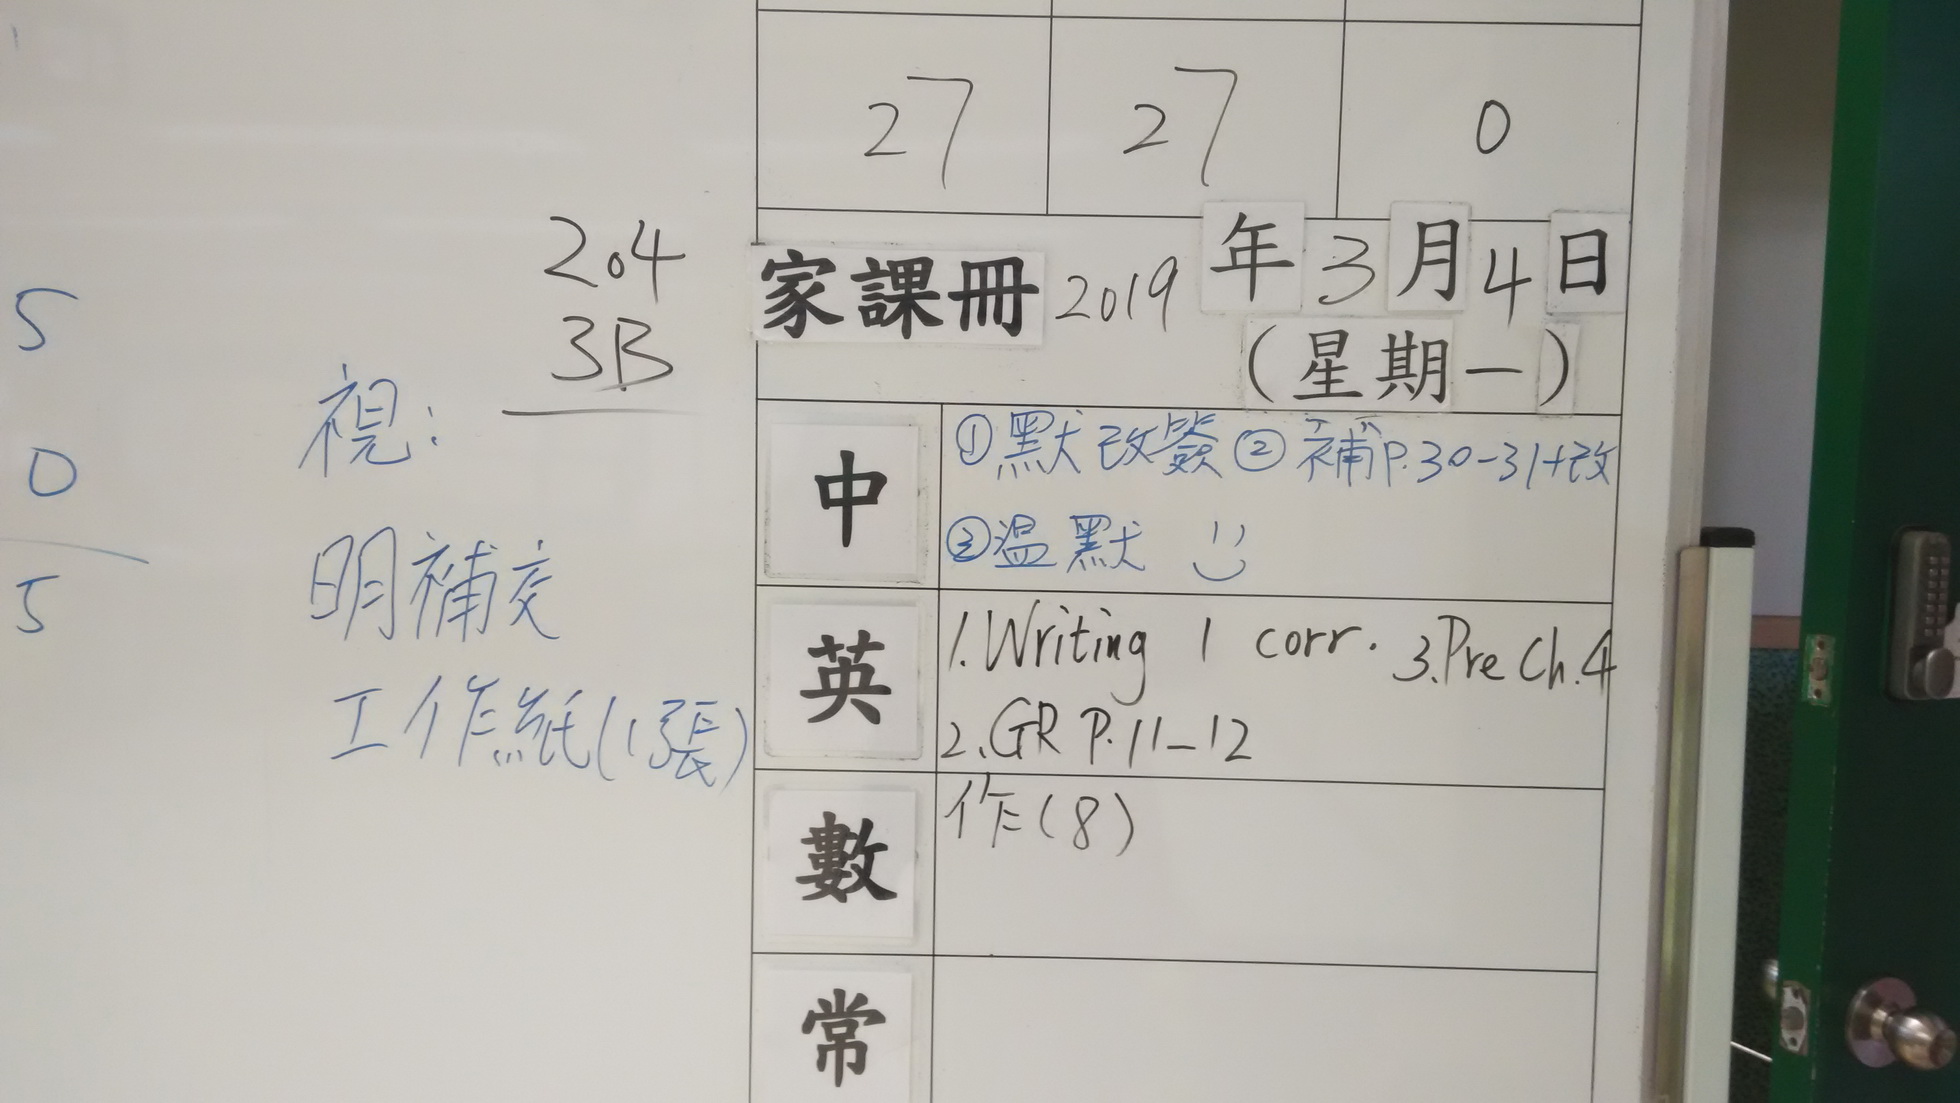 27 27 0
家課冊 2019年3月4日
(星期一)
中 ①默改簽 ② 補P.30-31+改
③溫默
英 1.Writing 1 corr. 3.Pre Ch.4
2.GR P.11-12
數 作(8)
常
204
3B
視:
明補交
工作紙(1張)
5
0
5